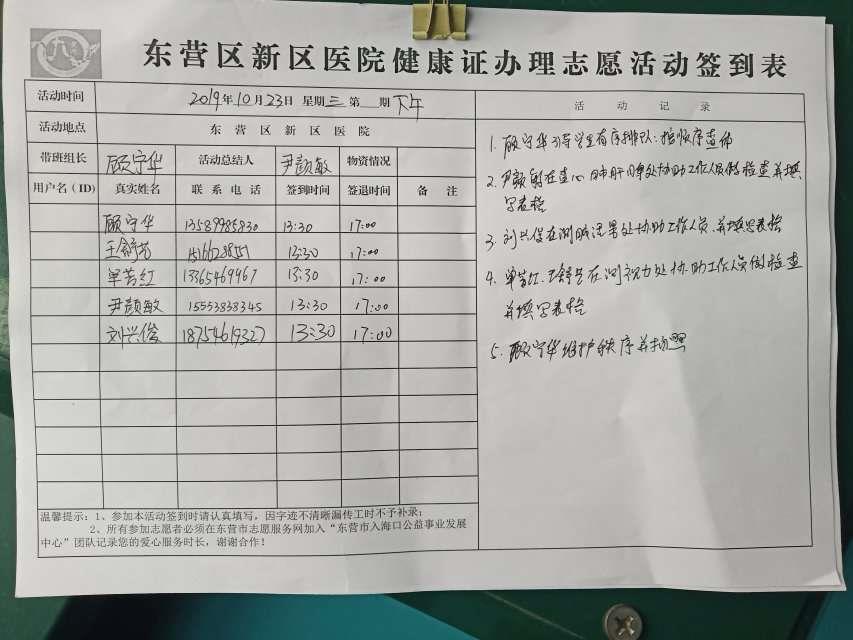 东营区新区医院健康证办理志愿活动签到表
活动时间 2019年10月23日 星期三 第 期 下午
活动地点 东营区新区医院
带班组长 顾守华 活动总结人 尹颜敏 物资情况
用户名(ID) 真实姓名 联系电话 签到时间 签退时间 备注
顾守华 13589985830 13:30 17:00
王舒芳 15166228551 13:30 17:00
单苦红 13365469467 13:30 17:00
尹颜敏 15553838345 13:30 17:00
刘兴俊 18754619327 13:30 17:00
温馨提示:1、参加本活动签到时请认真填写,因字迹不清晰漏传工时不予补录;
2、所有参加志愿者必须在东营市志愿服务网加入“东营市入海口公益事业发展
中心”团队记录您的爱心服务时长,谢谢合作!
活动记录
1. 顾守华引导学生有序排队:按顺序查体
2. 尹颜敏在查心肺肝脾处协助工作人员做检查并填
写表格
3. 刘兴俊在测 处协助工作人员,并填写表格
4. 单 红、王舒 在测视力处协助工作人员做检查
并填写表格
5. 顾守华维护秩序并拍照